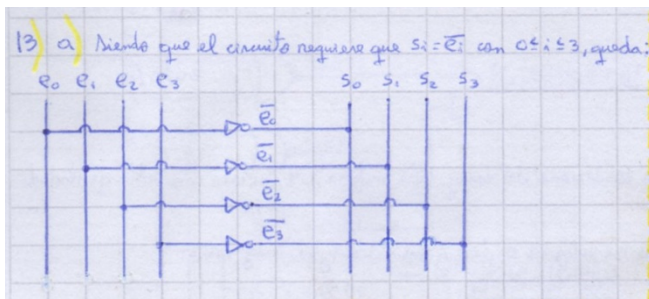 13) a) Siendo que el circuito requiere que Si = e̅i con 0 ≤ i ≤ 3, queda:
e0 e1 e2 e3 S0 S1 S2 S3
e̅0
e̅1
e̅2
e̅3